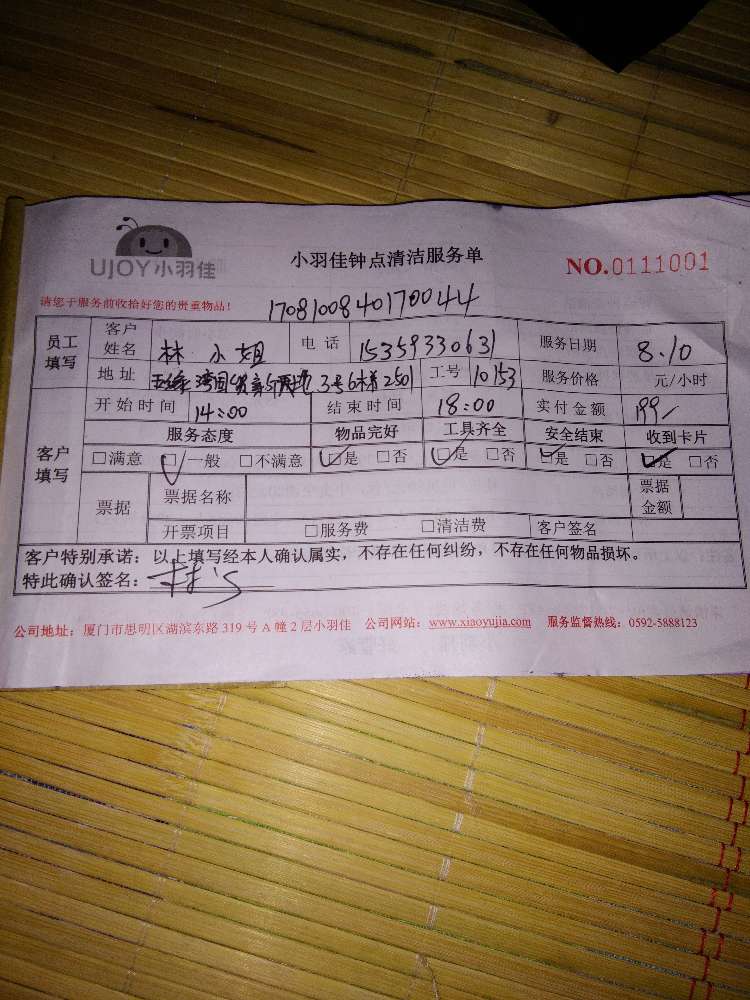 UJOY小羽佳
小羽佳钟点清洁服务单
NO.0111001
请您于服务前收拾好您的贵重物品!
1708100840170044
员工填写 客户姓名 林小姐 电话 15359330631 服务日期 8.10
地址 湾国 3号 2501 工号 10153 服务价格 元/小时
客户填写 开始时间 14:00 结束时间 18:00 实付金额 199/
服务态度 物品完好 工具齐全 安全结束 收到卡片
□满意 □一般 □不满意 □是 □否 □是 □否 □是 □否 □是 □否
票据 票据名称 票据金额
开票项目 □服务费 □清洁费 客户签名
客户特别承诺:以上填写经本人确认属实,不存在任何纠纷,不存在任何物品损坏。
特此确认签名:
公司地址:厦门市思明区湖滨东路 319 号 A 幢 2 层小羽佳 公司网站:www.xiaoyujia.com 服务监督热线:0592-5888123